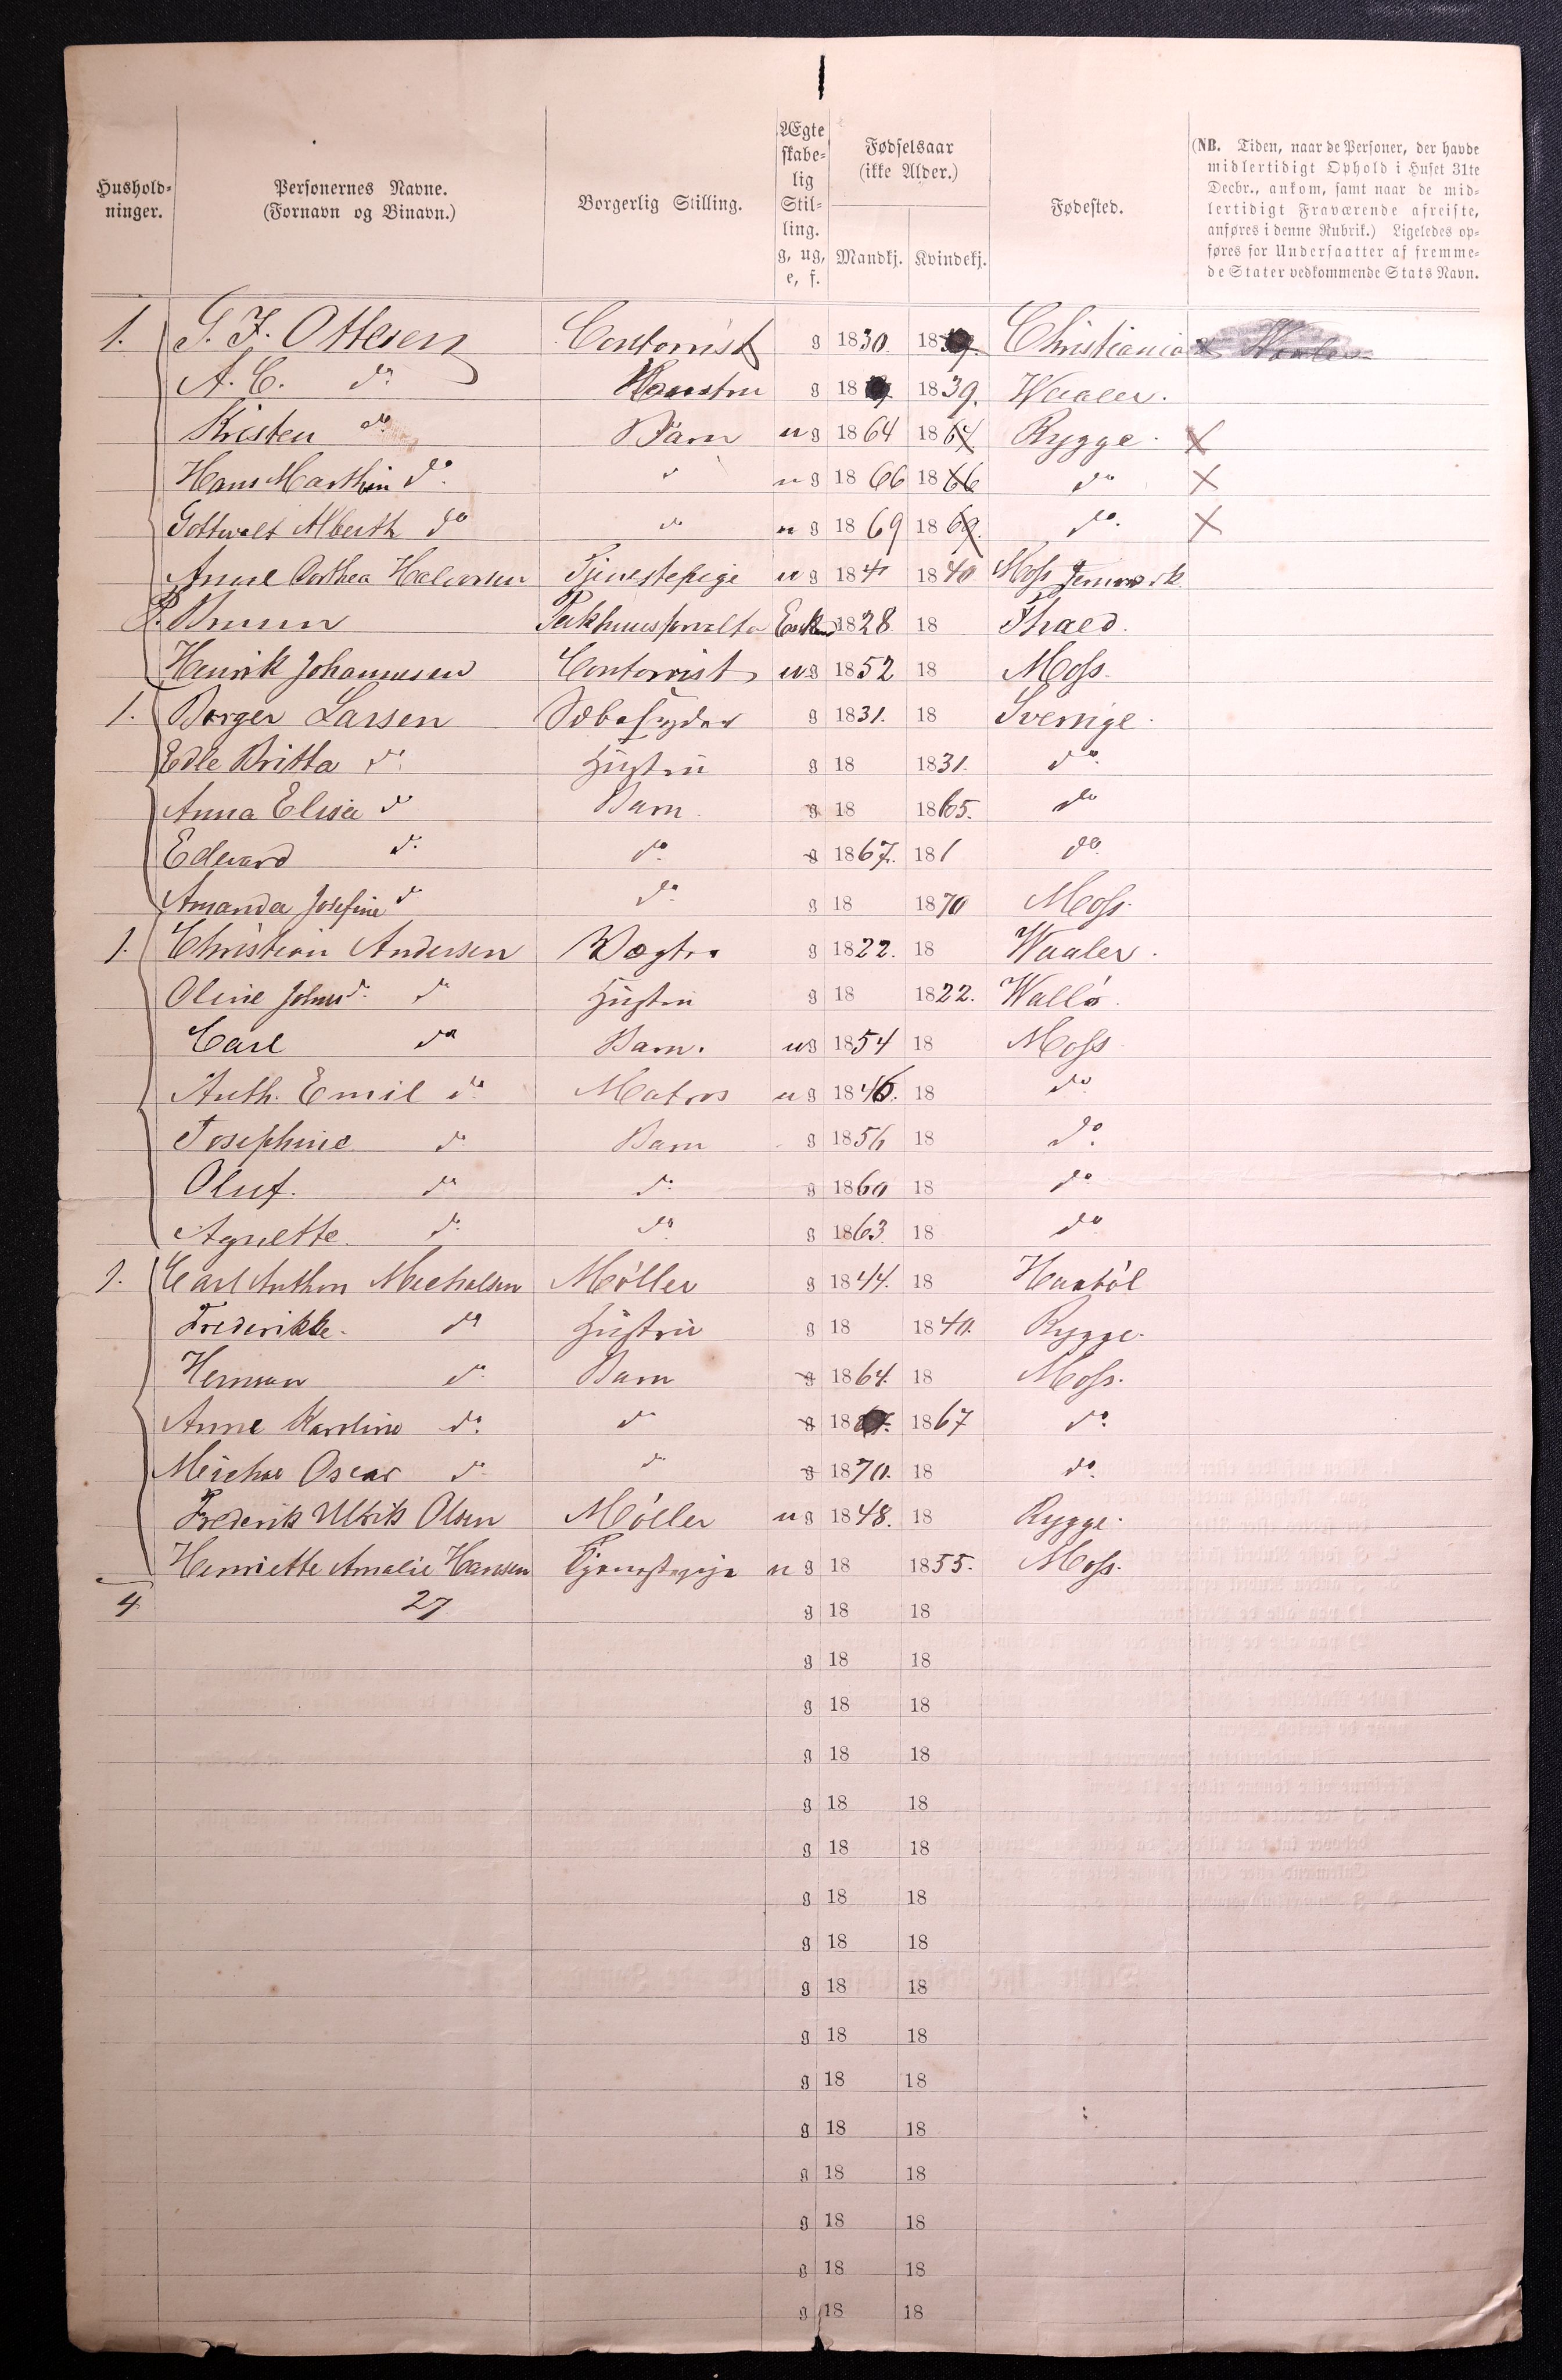 Hushold-
ninger.
Personernes Navne.
(Fornavn og Binavn.)
Borgerlig Stilling.
Ægte
skabe-
lig
Stil-
ling.
g, ug,
e, f.
Fødselsaar
(ikke Alder.)
Mandkj. Kvindekj.
Fødested.
(NB. Tiden, naar de Personer, der havde
midlertidigt Ophold i Huset 31te
Decbr., ankom, samt naar de mid-
lertidigt Fraværende afreiste,
anføres i denne Rubrik.) Ligeledes op-
føres for Undersaatter af fremme-
de Stater vedkommende Stats Navn.
1. G. F. Ottesen Contorrist g 1830. 18 Christiania
A. C. do Huustru g 18 1839. Waaler.
Kristen do Barn ug 1864 1864 Rygge. X
Hans Marthin do do ug 1866 1866 do X
Gottwalt Alberth do do ug 1869 1869. do. X
Anne Dorthea Halvorsen Tjenestepige ug 184 1840 Moss Jernverk
P. Bruun Enkem 1828 18
Henrik Johannesen Contorrist ug 1852 18 Moss.
1. Borger Larsen Sæbesyder g 1831. 18 Sverrige.
Edle Britta do Hustru g 18 1831. do
Anna Elisa do Barn g 18 1865. do
Edward do do g 1867. 181 do
Amanda Josefine do do g 18 1870 Moss.
1. Christian Andersen Vægter g 1822. 18 Waaler.
Oline Johnsd. do Hustru g 18 1822. Wallø.
Carl do Barn. ug 1854 18 Moss
Anth. Emil do Matros ug 1846. 18 do
Josephine do Barn g 1856 18 do.
Oluf. do do g 1860 18 do
Agnette. do do g 1863. 18 do
1. Carl Anthon Michalsen Møller g 1844. 18 Haabøl
Frederikke. do Hustru g 18 1840. Rygge.
Herman do Barn g 1864. 18 Moss.
Anne Karoline do. do g 18 1867 do
Oscar do do g 1870. 18 do.
Frederik Ulrik Olsen Møller ug 1848. 18 Rygge.
Henriette Amalie Hansen Tjenestepige ug 18 1855. Moss.
4 27 g 18 18
g 18 18
g 18 18
g 18 18
g 18 18
g 18 18
g 18 18
g 18 18
g 18 18
g 18 18
g 18 18
g 18 18
g 18 18
g 18 18
g 18 18
g 18 18